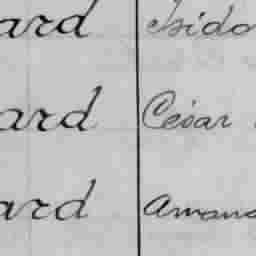 ard Isido
ard Cesar
ard Amans